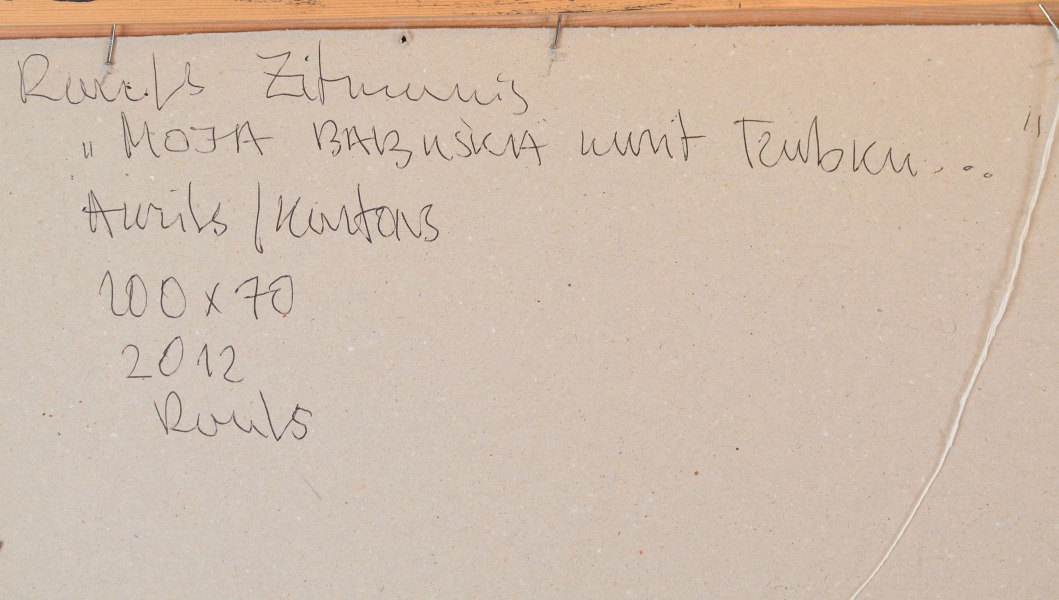 Rauls Zitmanis
„MOJA BABUŠKA kurit Trubku..."
Akrils/Kartons
100x70
2012
Rauls